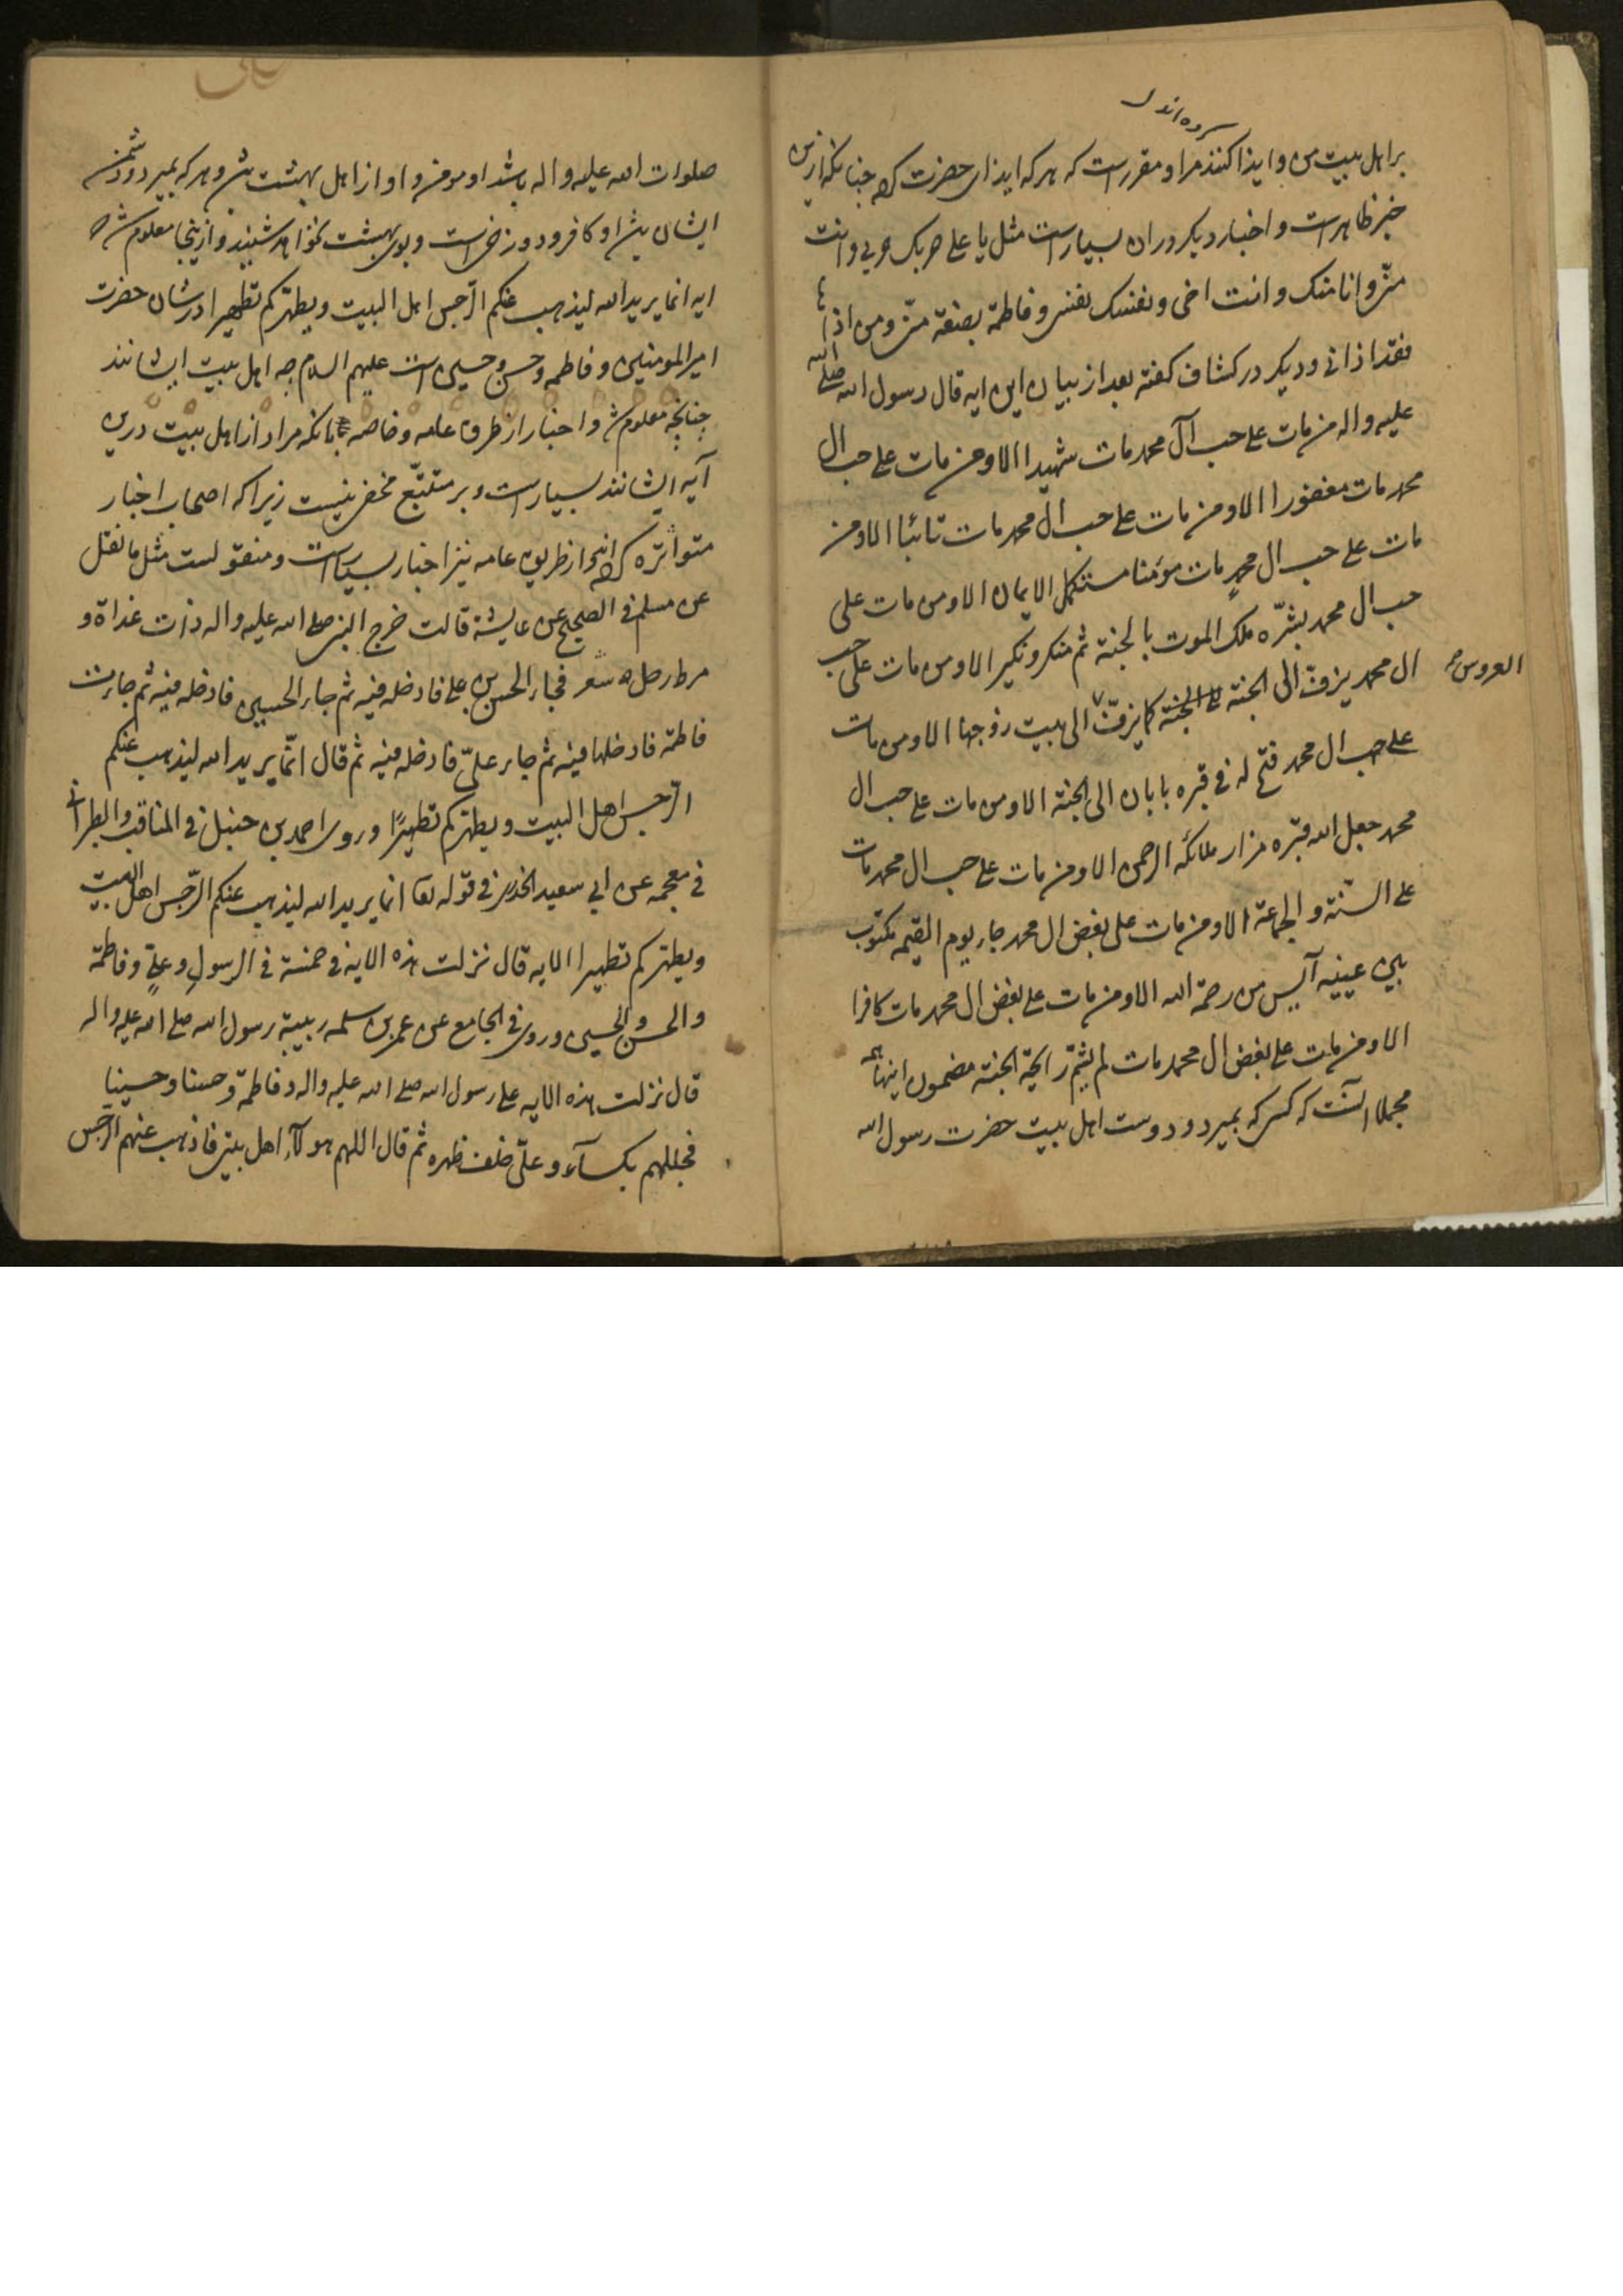 کرده اند
بر اهل بیت من و ایذا کنند مرا و مقرر است که هر که ایذای حضرت کرده چنانکه ازین
خبر ظاهر است و اخبار دیگر دران بسیار است مثل یا علی حربک حربی و انت
منّی و انا منک و انت اخی و نفسک نفسی و فاطمة بضعة منّی و من اذاها
فقد اذانی و دیگر در کشاف گفته بعد از بیان این ایه قال رسول الله صلی الله
علیه و اله من مات علی حب آل محمد مات شهیدا الا و من مات علی حب ال
محمد مات مغفورا الا و من مات علی حب ال محمد مات تائبا الا و من
مات علی حب ال محمد مات مؤمنا مستکمل الایمان الا و من مات علی
حب ال محمد بشّره ملک الموت بالجنة ثم منکر و نکیر الا و من مات علی حب
ال محمد یزفّ الی الجنة کما یزفّ الی بیت زوجها الا و من مات
العروس
علی حب ال محمد فتح له فی قبره بابان الی الجنة الا و من مات علی حب ال
محمد جعل الله قبره مزار ملائکه الرحمن الا و من مات علی حب ال محمد مات
علی السنّة و الجماعة الا و من مات علی بغض ال محمد جاء یوم القیمه مکتوب
بین عینیه آیس من رحمة الله الا و من مات علی بغض ال محمد مات کافرا
الا و من مات علی بغض ال محمد مات لم یشمّ رایحة الجنة مضمون اینها همه
مجملا انست که کسی که بمیرد و دوست اهل بیت حضرت رسول الله
صلوات الله علیه و اله باشد او مومن و او از اهل بهشت و هر که بمیرد و دشمن
ایشان او کافر و دوزخی است و بوی بهشت نخواهد شنید و ازینجا معلوم شد که
ایه انما یرید الله لیذهب عنکم الرّجس اهل البیت و یطهّرکم تطهیرا در شان حضرت
امیر المومنین و فاطمه و حسن و حسین است علیهم السلام چه اهل بیت ایشانند
چنانچه معلوم شد و اخبار از طرق عامه و خاصه بانکه مراد از اهل بیت درین
آیه ایشانند بسیار است و بر متتبّع مخفی نیست زیرا که اصحاب اخبار
متواتره کرده اند و از طریق عامه نیز اخبار بسیار است و منقولست مثل ما نقل
عن مسلم فی الصحیح عن عایشة قالت خرج النبی صلی الله علیه و اله ذات غداة و
مرط رحل شعر فجاء الحسن بن علی فادخله فیه ثم جاء الحسین فادخله فیه ثم جاءت
فاطمة فادخلها فیه ثم جاء علیّ فادخله فیه ثم قال انّما یرید الله لیذهب عنکم
الرّجس اهل البیت و یطهّرکم تطهیرًا و روی احمد بن حنبل فی المناقب و الطبرانی
فی معجمه عن ابی سعید الخدری فی قوله تعا انما یرید الله لیذهب عنکم الرّجس اهل البیت
و یطهّرکم تطهیرا الایه قال نزلت هذه الایه فی خمسة فی الرسول و علیٍّ و فاطمة
و الحسن و الحسین و روی فی الجامع عن عمر بن سلمه ربیبة رسول الله صلی الله علیه و اله
قال نزلت هذه الایه علی رسول الله صلی الله علیه و اله و فاطمة و حسنا و حسینا
فجللهم بکسآء و علیّ خلف ظهره ثم قال اللهم هولآء اهل بیتی فاذهب عنهم الرّجس